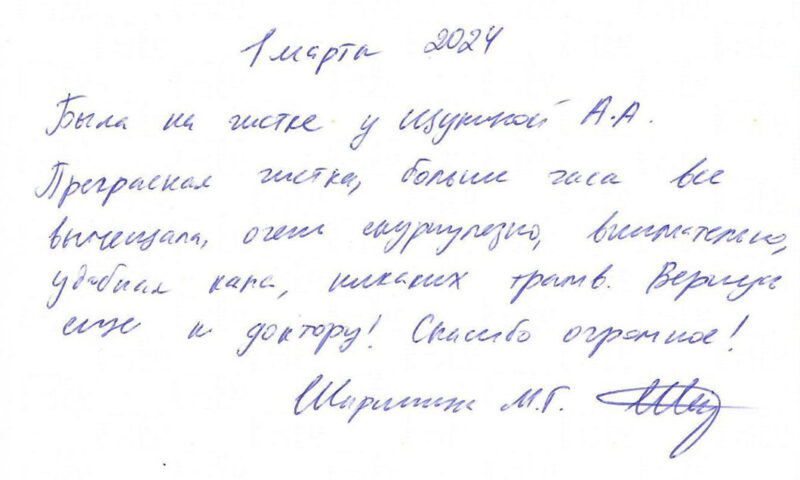 1 марта 2024
Была на чистке у Щукиной А.А.
Прекрасная чистка, больше часа все
вычищала, очень скурпулезно, внимательно,
удобная капа, никаких травм. Вернусь
еще к доктору! Спасибо огромное!
М.Г.